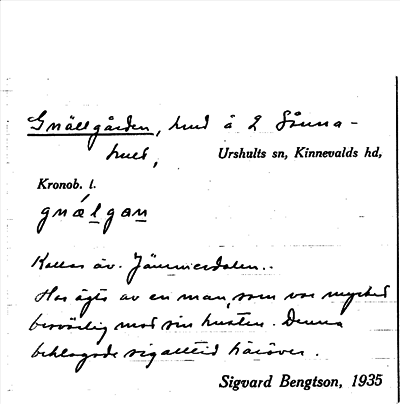 Gnällgården, hmd å 2 Sånna-
hult,
Urshults sn, Kinnevalds hd,
Kronob. l.
gnä́lgan
Kallas äv. Jämmerdalen..
Har ägts av en man, som var mycket
besvärlig mot sin hustru. Denna
beklagade sig alltid häröver.
Sigvard Bengtson, 1935